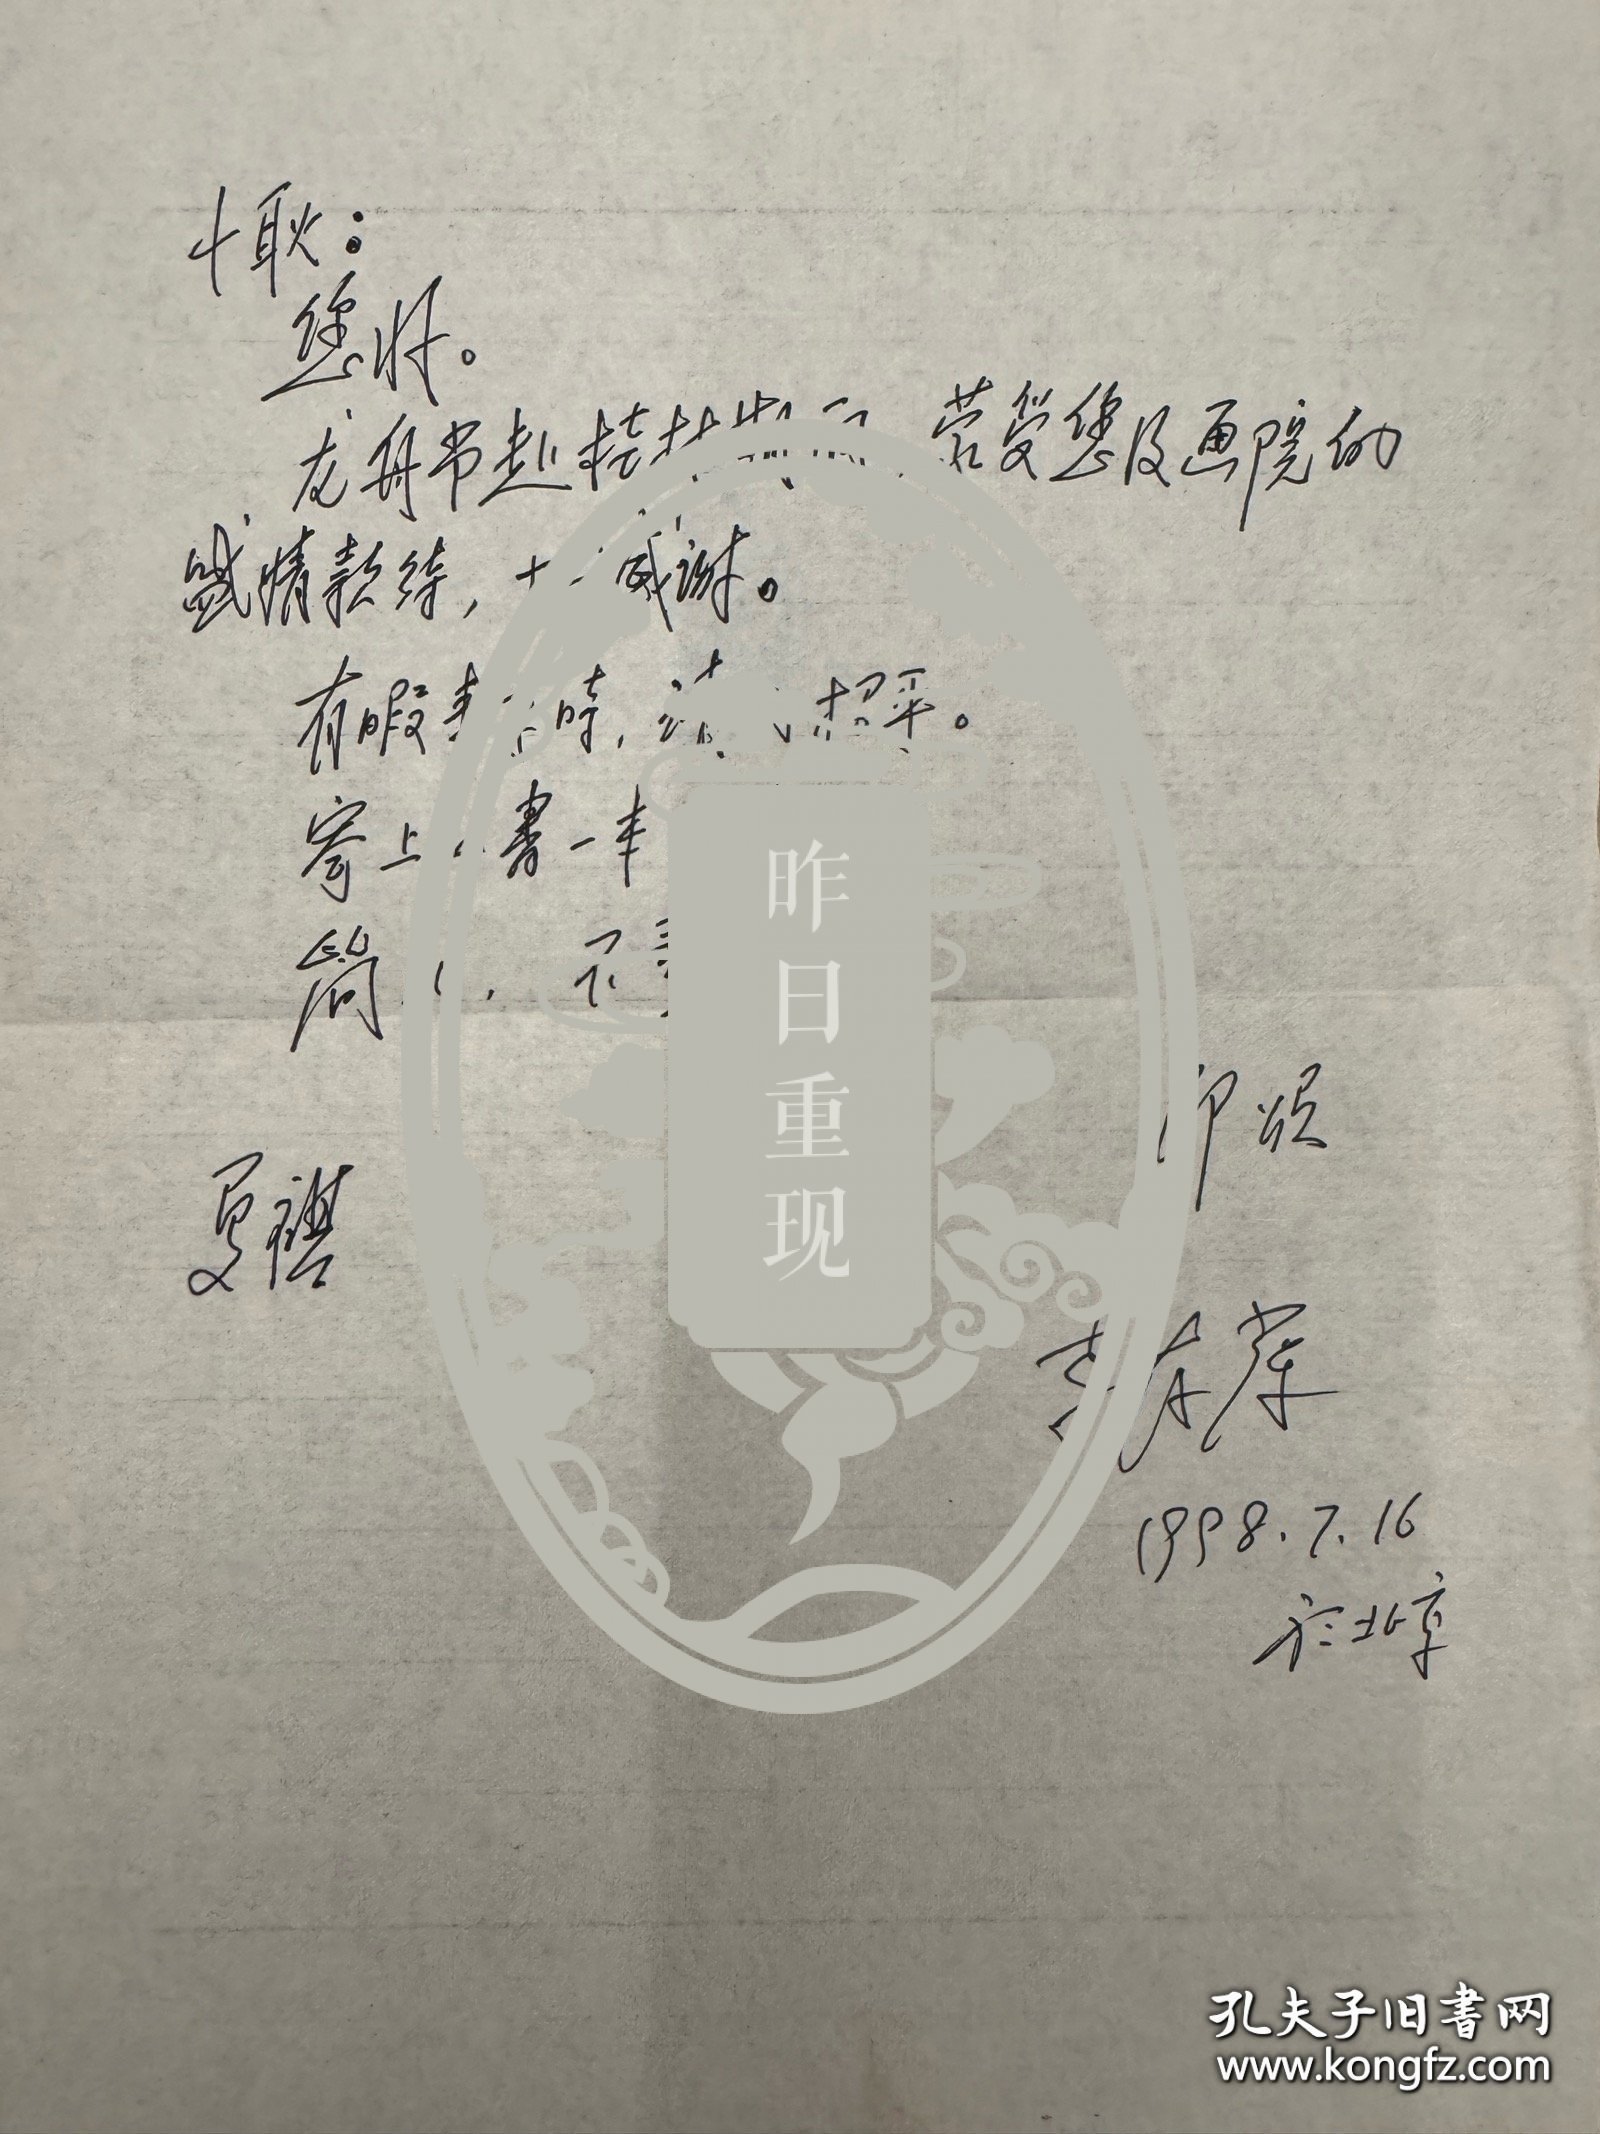 小耿：
您好。
龙舟节赴桂林 荣受您及画院的
盛情款待，十分感谢。
有暇来 时，请 超平。
寄上小書一本
简
即颂
夏祺
1998.7.16
於北京
昨日重现
孔夫子旧書网
www.kongfz.com